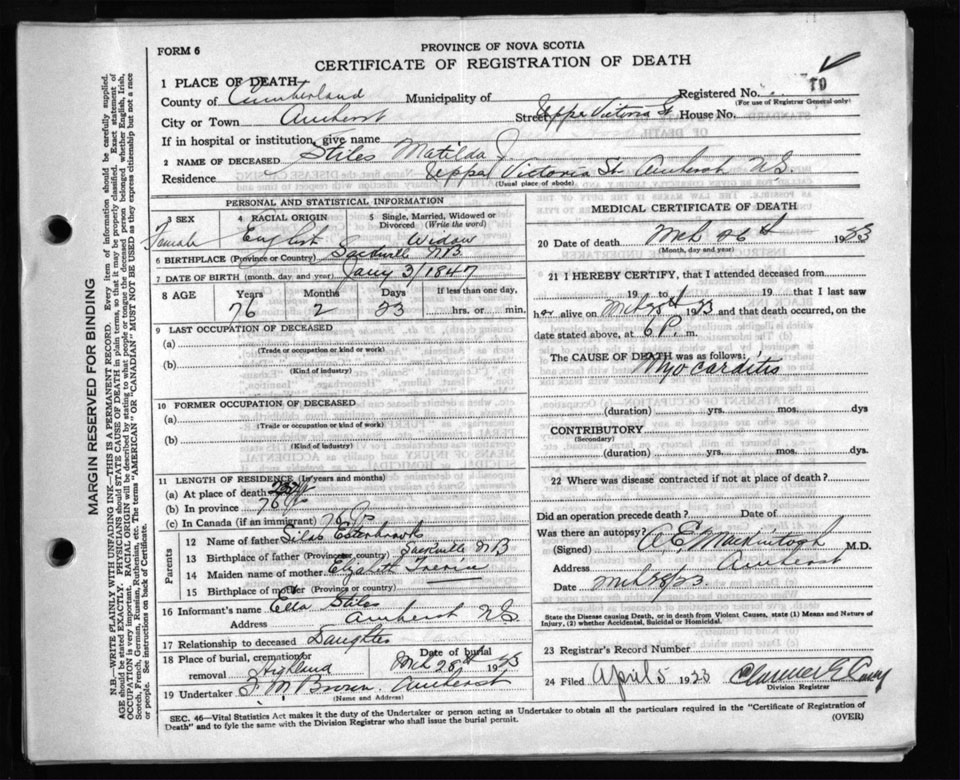 FORM 6
PROVINCE OF NOVA SCOTIA
CERTIFICATE OF REGISTRATION OF DEATH
1 PLACE OF DEATH
County of Cumberland Municipality of Registered No.
(For use of Registrar General only)
City or Town Amherst Street Upper Victoria St House No.
If in hospital or institution, give name
2 NAME OF DECEASED Stiles Matilda J.
Residence Upper Victoria St. Amherst N.S.
(Usual place of abode)
PERSONAL AND STATISTICAL INFORMATION
3 SEX Female
4 RACIAL ORIGIN English
5 Single, Married, Widowed or Divorced (Write the word) Widow
6 BIRTHPLACE (Province or Country) Sackville N.B
7 DATE OF BIRTH (month, day and year) Jany 3/1847
8 AGE Years Months Days If less than one day,
76 2 23 hrs. or min.
9 LAST OCCUPATION OF DECEASED
(a)
(Trade or occupation or kind or work)
(b)
(Kind of industry)
10 FORMER OCCUPATION OF DECEASED
(a)
(Trade or occupation or kind of work)
(b)
(Kind of industry)
11 LENGTH OF RESIDENCE (In years and months)
(a) At place of death
(b) In province 76
(c) In Canada (if an immigrant) 76
Parents
12 Name of father Silas Esterbrooks
13 Birthplace of father (Province or country) Sackville N B
14 Maiden name of mother Elizabeth
15 Birthplace of mother (Province or country)
16 Informant's name Ella Stiles
Address Amherst N.S.
17 Relationship to deceased Daughter
18 Place of burial, cremation or removal Highland Date of burial Mch 28th 1923
19 Undertaker F. M. Brown Amherst
(Name and Address)
MEDICAL CERTIFICATE OF DEATH
20 Date of death Mch 26th 1923
(Month, day and year)
21 I HEREBY CERTIFY, that I attended deceased from
19 to 19 that I last saw
her alive on Mch 1923 and that death occurred, on
date stated above, at 6 P. m.
The CAUSE OF DEATH was as follows:
Myocarditis
(duration) yrs. mos. dys
CONTRIBUTORY
(Secondary)
(duration) yrs. mos. dys.
22 Where was disease contracted if not at place of death?
Did an operation precede death? Date of
Was there an autopsy?
(Signed) A. E. Mackintosh M.D.
Address Amherst
Date Mch 28/23.
State the Disease causing Death, or in death from Violent Causes, state (1) Means and Nature of
Injury, (2) whether Accidental, Suicidal or Homicidal.
23 Registrar's Record Number
24 Filed April 5 1923
Division Registrar
SEC. 46—Vital Statistics Act makes it the duty of the Undertaker or person acting as Undertaker to obtain all the particulars required in the "Certificate of Registration of
Death" and to fyle the same with the Division Registrar who shall issue the burial permit.
(OVER)
MARGIN RESERVED FOR BINDING
N.B.—WRITE PLAINLY WITH UNFADING INK—THIS IS A PERMANENT RECORD. Every item of information should be carefully supplied.
AGE should be stated EXACTLY. PHYSICIANS should STATE CAUSE OF DEATH in plain terms, so that it may be properly classified. Exact statement of
OCCUPATION is very important. RACIAL ORIGIN will be described by stating to what people or tongue the deceased person belonged whether English, Irish,
Scotch, French, German, Russian, Ruthenian, etc. The terms "AMERICAN" OR "CANADIAN" MUST NOT BE USED as they express citizenship but not a race
or people. See instructions on back of Certificate.